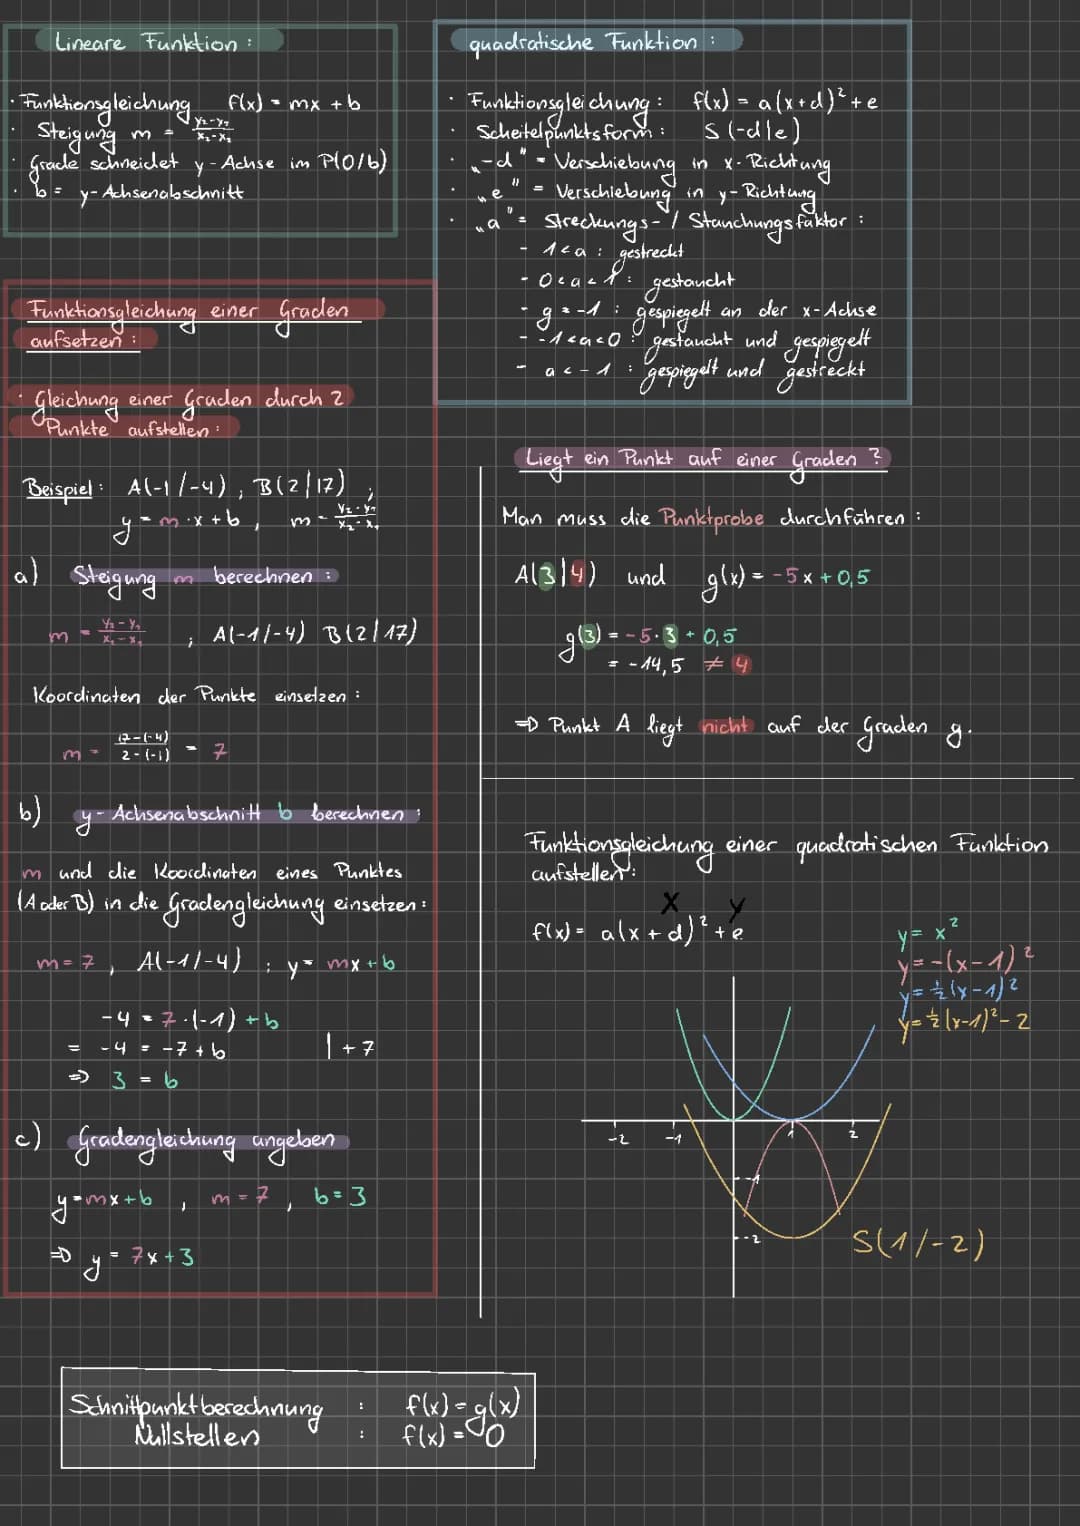 Lineare Funktion :
· Funktionsgleichung f(x) = mx + b
· Steigung m = y₂-y₁ / x₂-x₁
· Grade schneidet y-Achse im P(0/b)
· b = y-Achsenabschnitt
quadratische Funktion :
· Funktionsgleichung : f(x) = a(x+d)² + e
· Scheitelpunktsform : S(-d|e)
· „-d" = Verschiebung in x-Richtung
· „e" = Verschiebung in y-Richtung
· „a" = Streckungs- / Stauchungsfaktor :
- 1<a : gestreckt
- 0<a<1 : gestaucht
- g = -1 : gespiegelt an der x-Achse
- -1<a<0 : gestaucht und gespiegelt
- a<-1 : gespiegelt und gestreckt
Funktionsgleichung einer Graden
aufsetzen :
· Gleichung einer Graden durch 2
Punkte aufstellen :
Beispiel : A(-1/-4) , B(2|17) ;
y = m·x + b , m = y₂-y₁ / x₂-x₁
a) Steigung m berechnen :
m = y₂-y₁ / x₂-x₁ ; A(-1/-4) B(2/17)
Koordinaten der Punkte einsetzen :
m = 17-(-4) / 2-(-1) = 7
b) y-Achsenabschnitt b berechnen :
m und die Koordinaten eines Punktes
(A oder B) in die Gradengleichung einsetzen :
m = 7 , A(-1/-4) ; y = mx + b
-4 = 7·(-1) + b
= -4 = -7 + b | +7
⇒ 3 = b
c) Gradengleichung angeben
y = mx + b , m = 7 , b = 3
⇒ y = 7x + 3
Liegt ein Punkt auf einer Graden ?
Man muss die Punktprobe durchführen :
A(3|4) und g(x) = -5x + 0,5
g(3) = -5·3 + 0,5
= -14,5 ≠ 4
⇒ Punkt A liegt nicht auf der Graden g.
Funktionsgleichung einer quadratischen Funktion
aufstellen :
x y
f(x) = a(x + d)² + e
y = x²
y = -(x-1)²
y = ½(x-1)²
y = ½(x-1)² - 2
-2 -1 1 2
-1
-2
S(1/-2)
Schnittpunktberechnung : f(x) = g(x)
Nullstellen : f(x) = 0